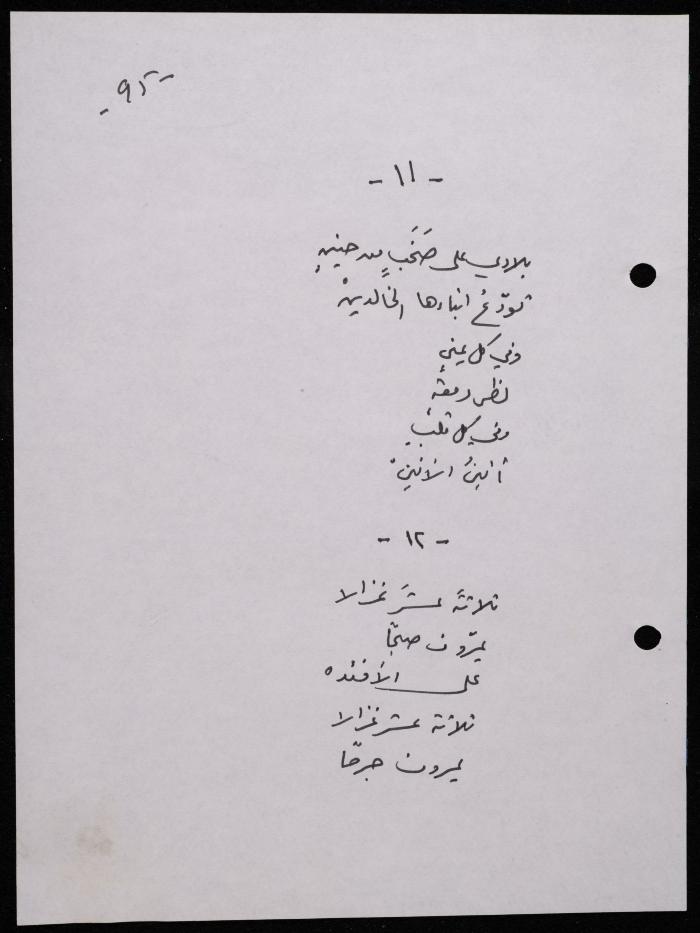 -٩٢-
-١١-
بلادي على صَخَبٍ من حنينٍ
تودّعُ ابناءها الخالدينْ
وفي كل عينٍ
تطل دمعة
وفي كل قلبٍ
أنينُ الأنينْ
-١٢-
ثلاثةَ عشرَ غزالا
يمرّون صبحًا
على الأفئده
ثلاثة عشر غزالا
يمرون جرحًا